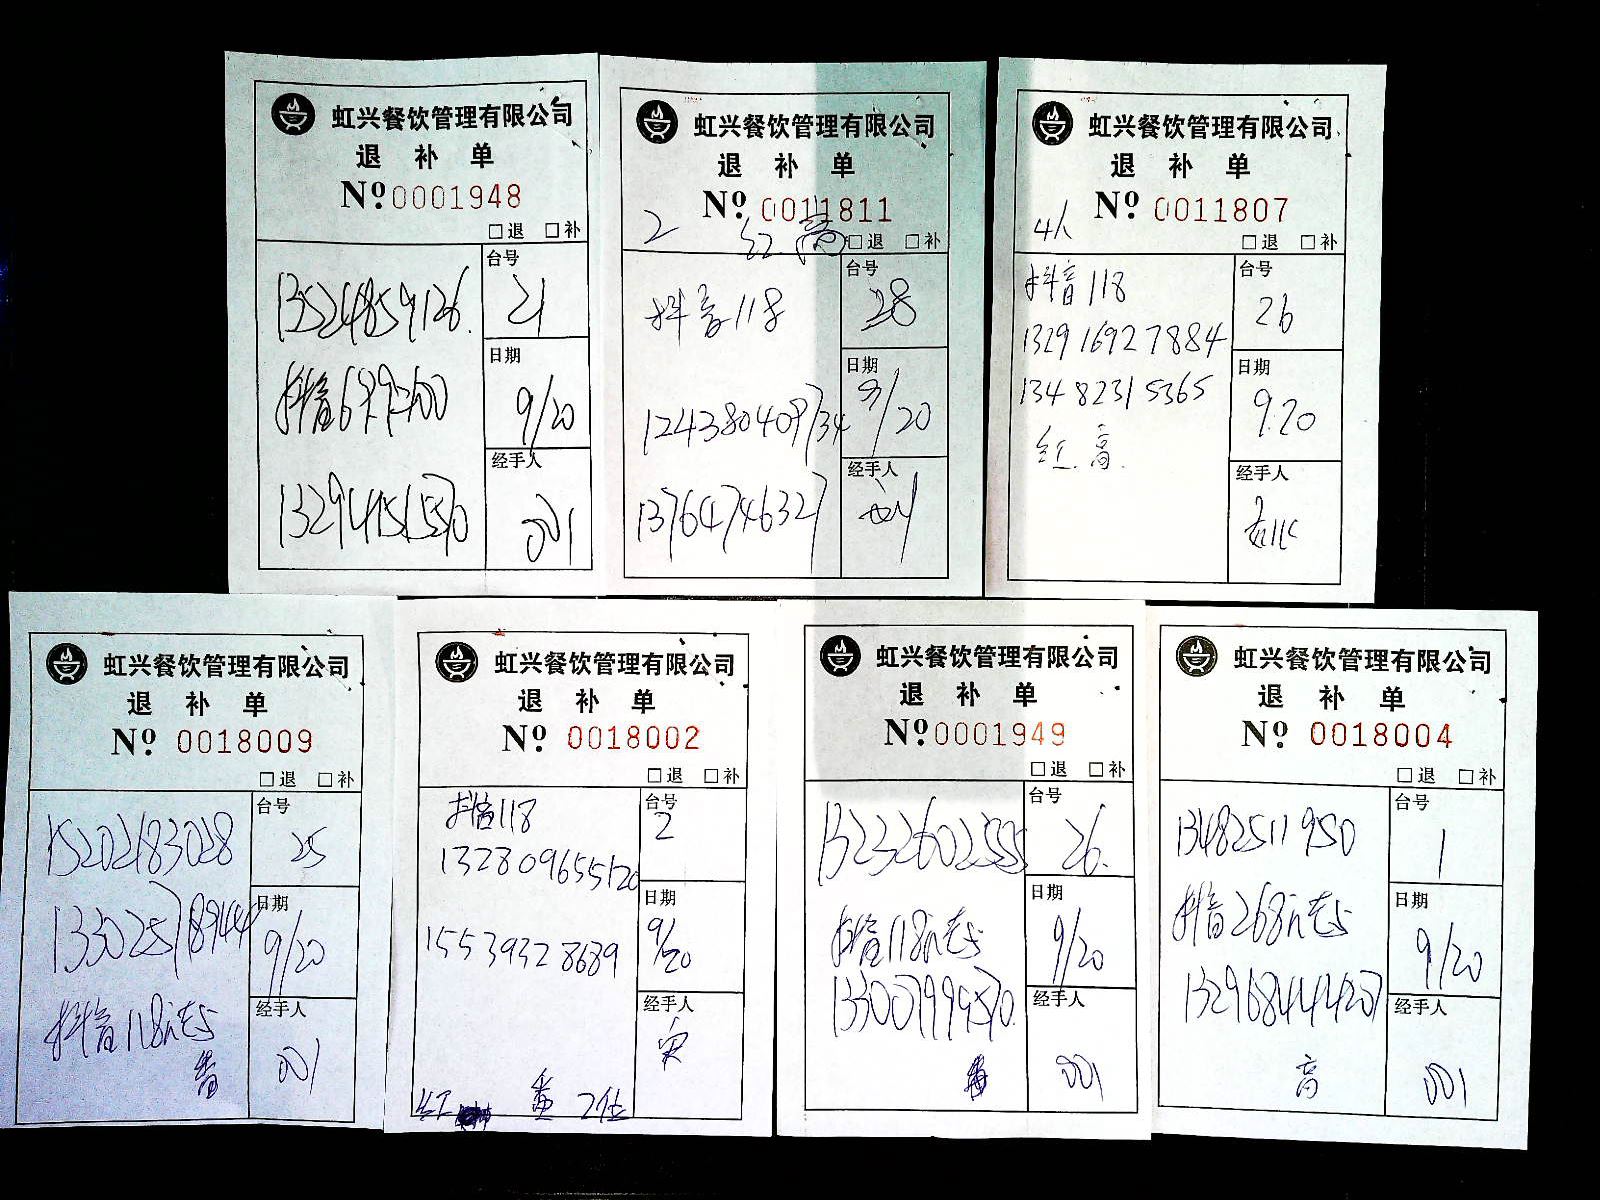 虹兴餐饮管理有限公司
退 补 单
Nº 0001948
□退 □补
13524859126
台号
21
日期
9/20
13294151570
经手人
001
虹兴餐饮管理有限公司
退 补 单
Nº 0011811
2 红.高
□退 □补
抖音118
台号
28
日期
9/20
124380409734
13764746327
经手人
虹兴餐饮管理有限公司
退 补 单
Nº 0011807
4人
□退 □补
抖音118
台号
26
132916927884
13482315365
日期
9.20
红.高.
经手人
虹兴餐饮管理有限公司
退 补 单
Nº 0018009
□退 □补
15202183028
台号
25
133025718944
日期
9/20
抖音118
经手人
001
虹兴餐饮管理有限公司
退 补 单
Nº 0018002
□退 □补
抖音118
台号
2
132809655120
15539328689
日期
9/20
经手人
红 番 2位
虹兴餐饮管理有限公司
退 补 单
Nº 0001949
□退 □补
台号
26.
抖音118
日期
9/20
经手人
001
虹兴餐饮管理有限公司
退 补 单
Nº 0018004
□退 □补
13482511950
台号
1
抖音268
日期
9/20
132968444207
高
经手人
001